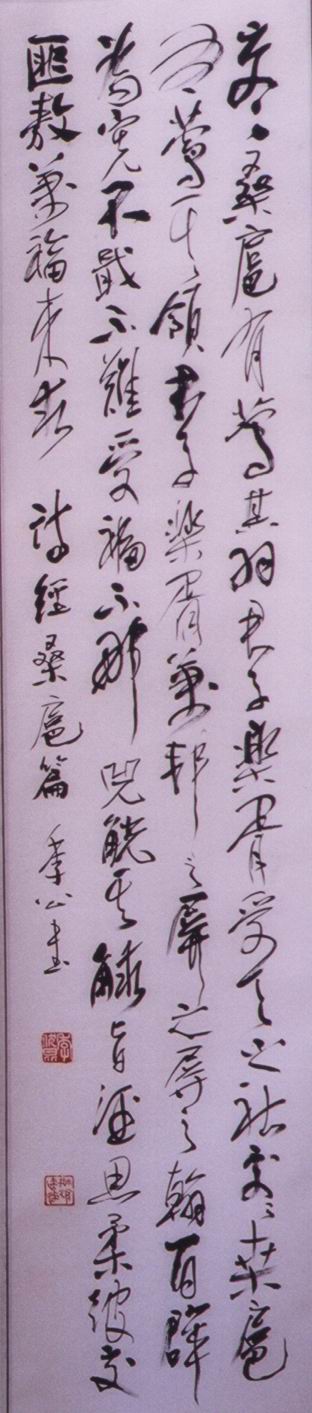 交〻桑扈有鶯其羽君子樂胥受天之祜交〻桑扈
有鶯其領君子樂胥萬邦之屏之屏之翰百辟
為憲不戢不難受福不那兕觥其觩旨酒思柔彼交
匪敖萬福來求 詩經桑扈篇 書